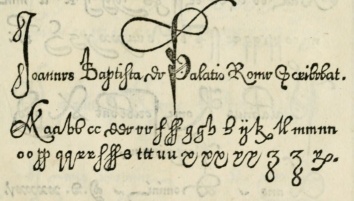 Joannes Baptista de Palatio Rome Scribebat.
A a a b b c c d e e f f ff g g h h i y k ll m m n n
o o pp q q r r s ff s t t t u u v v x x y y z z &.